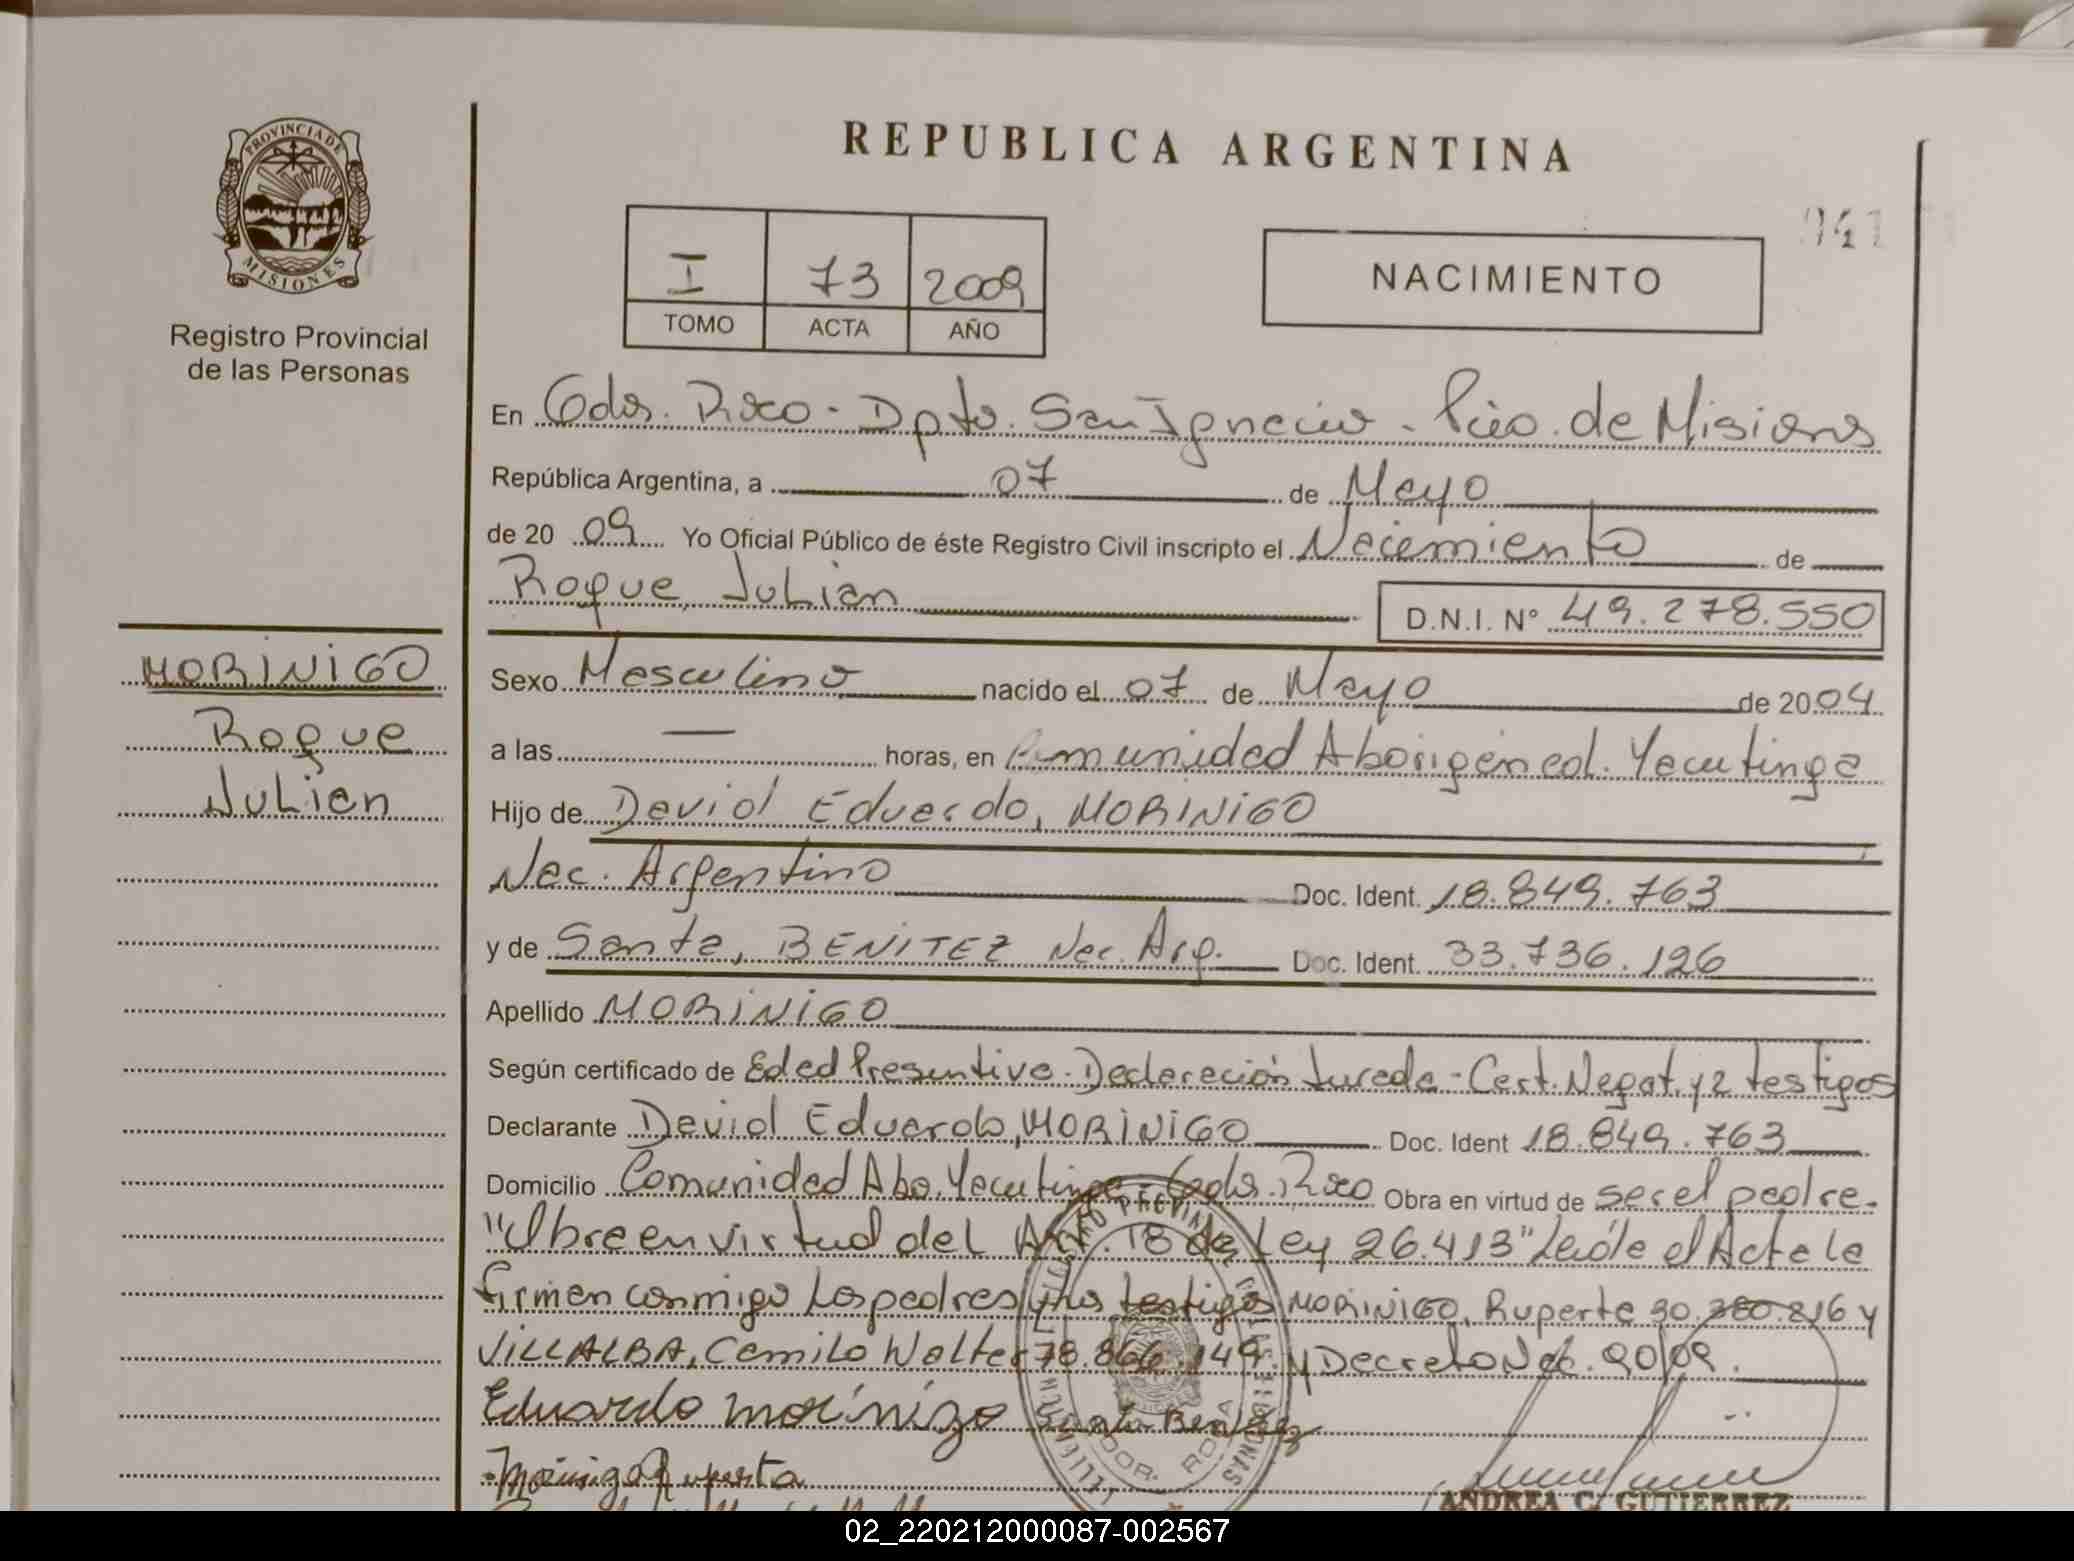 REPUBLICA ARGENTINA
PROVINCIA DE
MISIONES
Registro Provincial
de las Personas
I 73 2009
TOMO ACTA AÑO
NACIMIENTO
En Gdor. Roca - Dpto. San Ignacio - Pcia. de Misiones
República Argentina, a 07 de Mayo
de 20 09 Yo Oficial Público de éste Registro Civil inscripto el Nacimiento de
Roque Julian D.N.I. N° 49.278.550
MORINIGO
Roque
Julian
Sexo Masculino nacido el 07 de Mayo de 2004
a las — horas, en Comunidad Aborigen col. Yacutinga
Hijo de David Eduardo, MORINIGO
Nac. Argentino Doc. Ident. 18.849.763
y de Santa, BENITEZ Nac. Arg. Doc. Ident. 33.736.126
Apellido MORINIGO
Según certificado de Edad Presuntiva - Declaración Jurada - Cert. Negat. y 2 testigos
Declarante David Eduardo, MORINIGO Doc. Ident 18.849.763
Domicilio Comunidad Abo. Yacutinga - Gdor. Roca Obra en virtud de ser el padre -
"Obra en virtud del Art. 18 de Ley 26.413" Leída el Acta la
firman conmigo los padres y los testigos MORINIGO, Ruperta 30.380.816 y
VILLALBA, Camilo Walter 78.866.149 y Decreto Nac. 90/09.
Eduardo morínigo Santa Benitez
Morinigo Ruperta
ANDREA C. GUTIERREZ
02_220212000087-002567